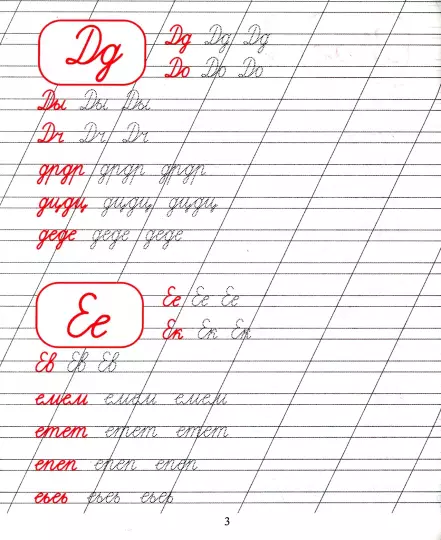 Дд
Дд Дд Дд
До До До
Ды Ды Ды
Дч Дч Дч
дрдр дрдр дрдр
дцдц дцдц дцдц
деде деде деде
Ее
Ее Ее Ее
Ек Ек Ек
Ев Ев Ев
емем емем емем
етет етет етет
епеп епеп епеп
еьеь еьеь еьеь
3